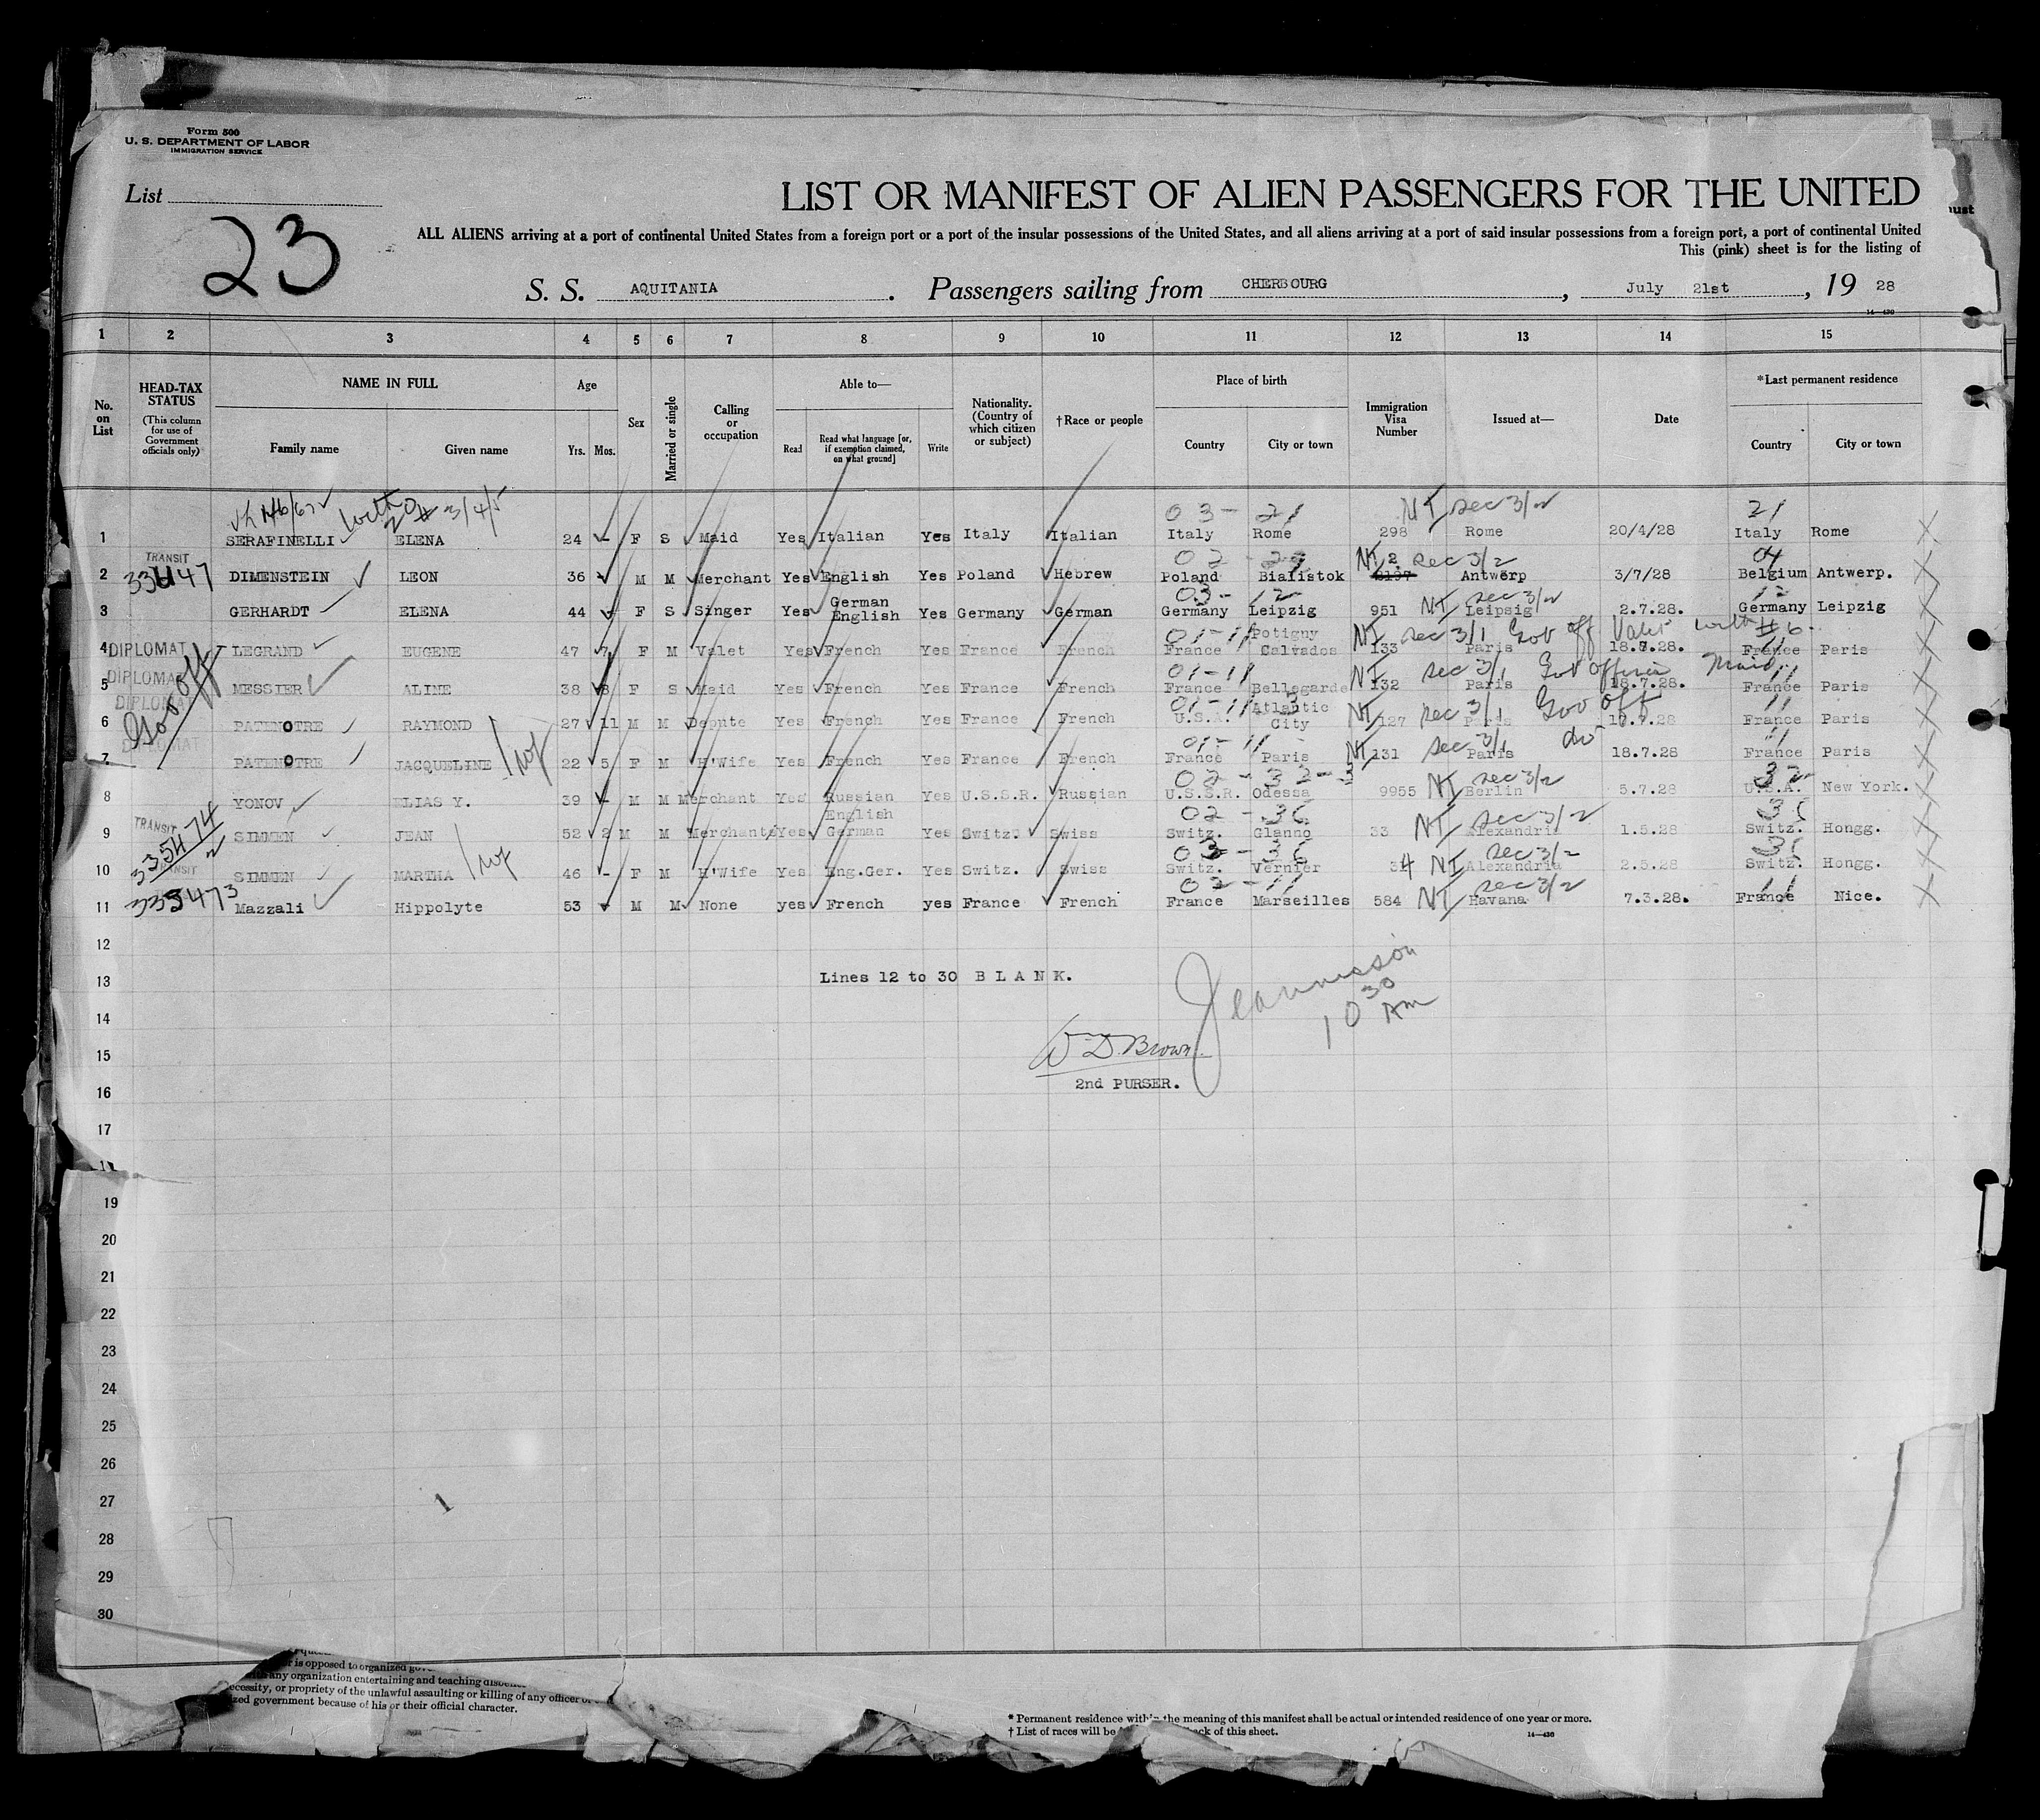 Form 500
U. S. DEPARTMENT OF LABOR
IMMIGRATION SERVICE
List
23
LIST OR MANIFEST OF ALIEN PASSENGERS FOR THE UNITED
ALL ALIENS arriving at a port of continental United States from a foreign port or a port of the insular possessions of the United States, and all aliens arriving at a port of said insular possessions from a foreign port, a port of continental United
This (pink) sheet is for the listing of
S. S. AQUITANIA. Passengers sailing from CHERBOURG, July 21st, 19 28
14—430
1 2 3 4 5 6 7 8 9 10 11 12 13 14 15
No. on List
HEAD-TAX STATUS
(This column for use of Government officials only)
NAME IN FULL
Family name Given name
Age
Yrs. Mos.
Sex
Married or single
Calling or occupation
Able to—
Read Read what language [or, if exemption claimed, on what ground] Write
Nationality. (Country of which citizen or subject)
†Race or people
Place of birth
Country City or town
Immigration Visa Number
Issued at—
Date
*Last permanent residence
Country City or town
with 3/4/5 03-21 NI sec 3/2 21
1 SERAFINELLI ELENA 24 - F S Maid Yes Italian Yes Italy Italian Italy Rome 298 Rome 20/4/28 Italy Rome
TRANSIT NI sec 3/2 04
2 DIMENSTEIN LEON 36 M M Merchant Yes English Yes Poland Hebrew Poland Bialistok Antwerp 3/7/28 Belgium Antwerp.
03-12 sec 3/2 12
3 GERHARDT ELENA 44 F S Singer Yes German English Yes Germany German Germany Leipzig 951 NI Leipsig 2.7.28. Germany Leipzig
01-11 NI sec 3/1 Gov off Valet with #6
4 DIPLOMAT LEGRAND EUGENE 47 7 F M Valet Yes French Yes France French France Potigny Calvados 133 Paris 18.7.28. France Paris
DIPLOMAT 01-11 NI sec 3/1 Maid 11
5 MESSIER ALINE 38 8 F S Maid Yes French Yes France French France Bellegarde 132 Paris 18.7.28. France Paris
DIPLOMAT Gov off NI sec 3/1 Gov off 11
6 PATENOTRE RAYMOND 27 11 M M Depute Yes French Yes France French U.S.A. Atlantic City 127 Paris 18.7.28 France Paris
DIPLOMAT 01-11 NI sec 3/1 do 11
7 PATENOTRE JACQUELINE 22 5 F M H'Wife Yes French Yes France French France Paris 131 Paris 18.7.28 France Paris
02-32-3 sec 3/2 32
8 YONOV ELIAS Y. 39 - M M Merchant Yes Russian Yes U.S.S.R. Russian U.S.S.R. Odessa 9955 NI Berlin 5.7.28 U.S.A. New York.
TRANSIT 335474 02-36 sec 3/2
9 SIMMEN JEAN 52 2 M M Merchant Yes English German Yes Switz. Swiss Switz. Glanno 33 NI Alexandria 1.5.28 Switz. Hongg.
TRANSIT 03-36 sec 3/2
10 SIMMEN MARTHA 46 - F M H'Wife Yes Eng.Ger. Yes Switz. Swiss Switz. Vernier 34 NI Alexandria 2.5.28 Switz. Hongg.
335473 02-11 sec 3/2 11
11 Mazzali Hippolyte 53 M M None yes French yes France French France Marseilles 584 NI Havana 7.3.28. France Nice.
12
13 Lines 12 to 30 B L A N K.
14 10 30 AM
15 W D. Brown
16 2nd PURSER.
17
19
20
21
22
23
24
25
26
27
28
29
30
is opposed to organized
any organization entertaining and teaching
necessity, or propriety of the unlawful assaulting or killing of any officer
government because of his or their official character.
* Permanent residence within the meaning of this manifest shall be actual or intended residence of one year or more.
† List of races will be of this sheet.
14—430